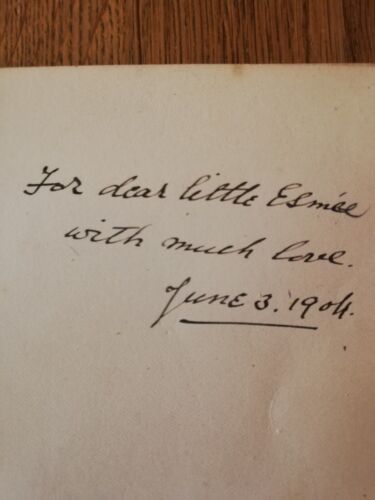 For dear little Esmée
with much love.
June 3. 1904.